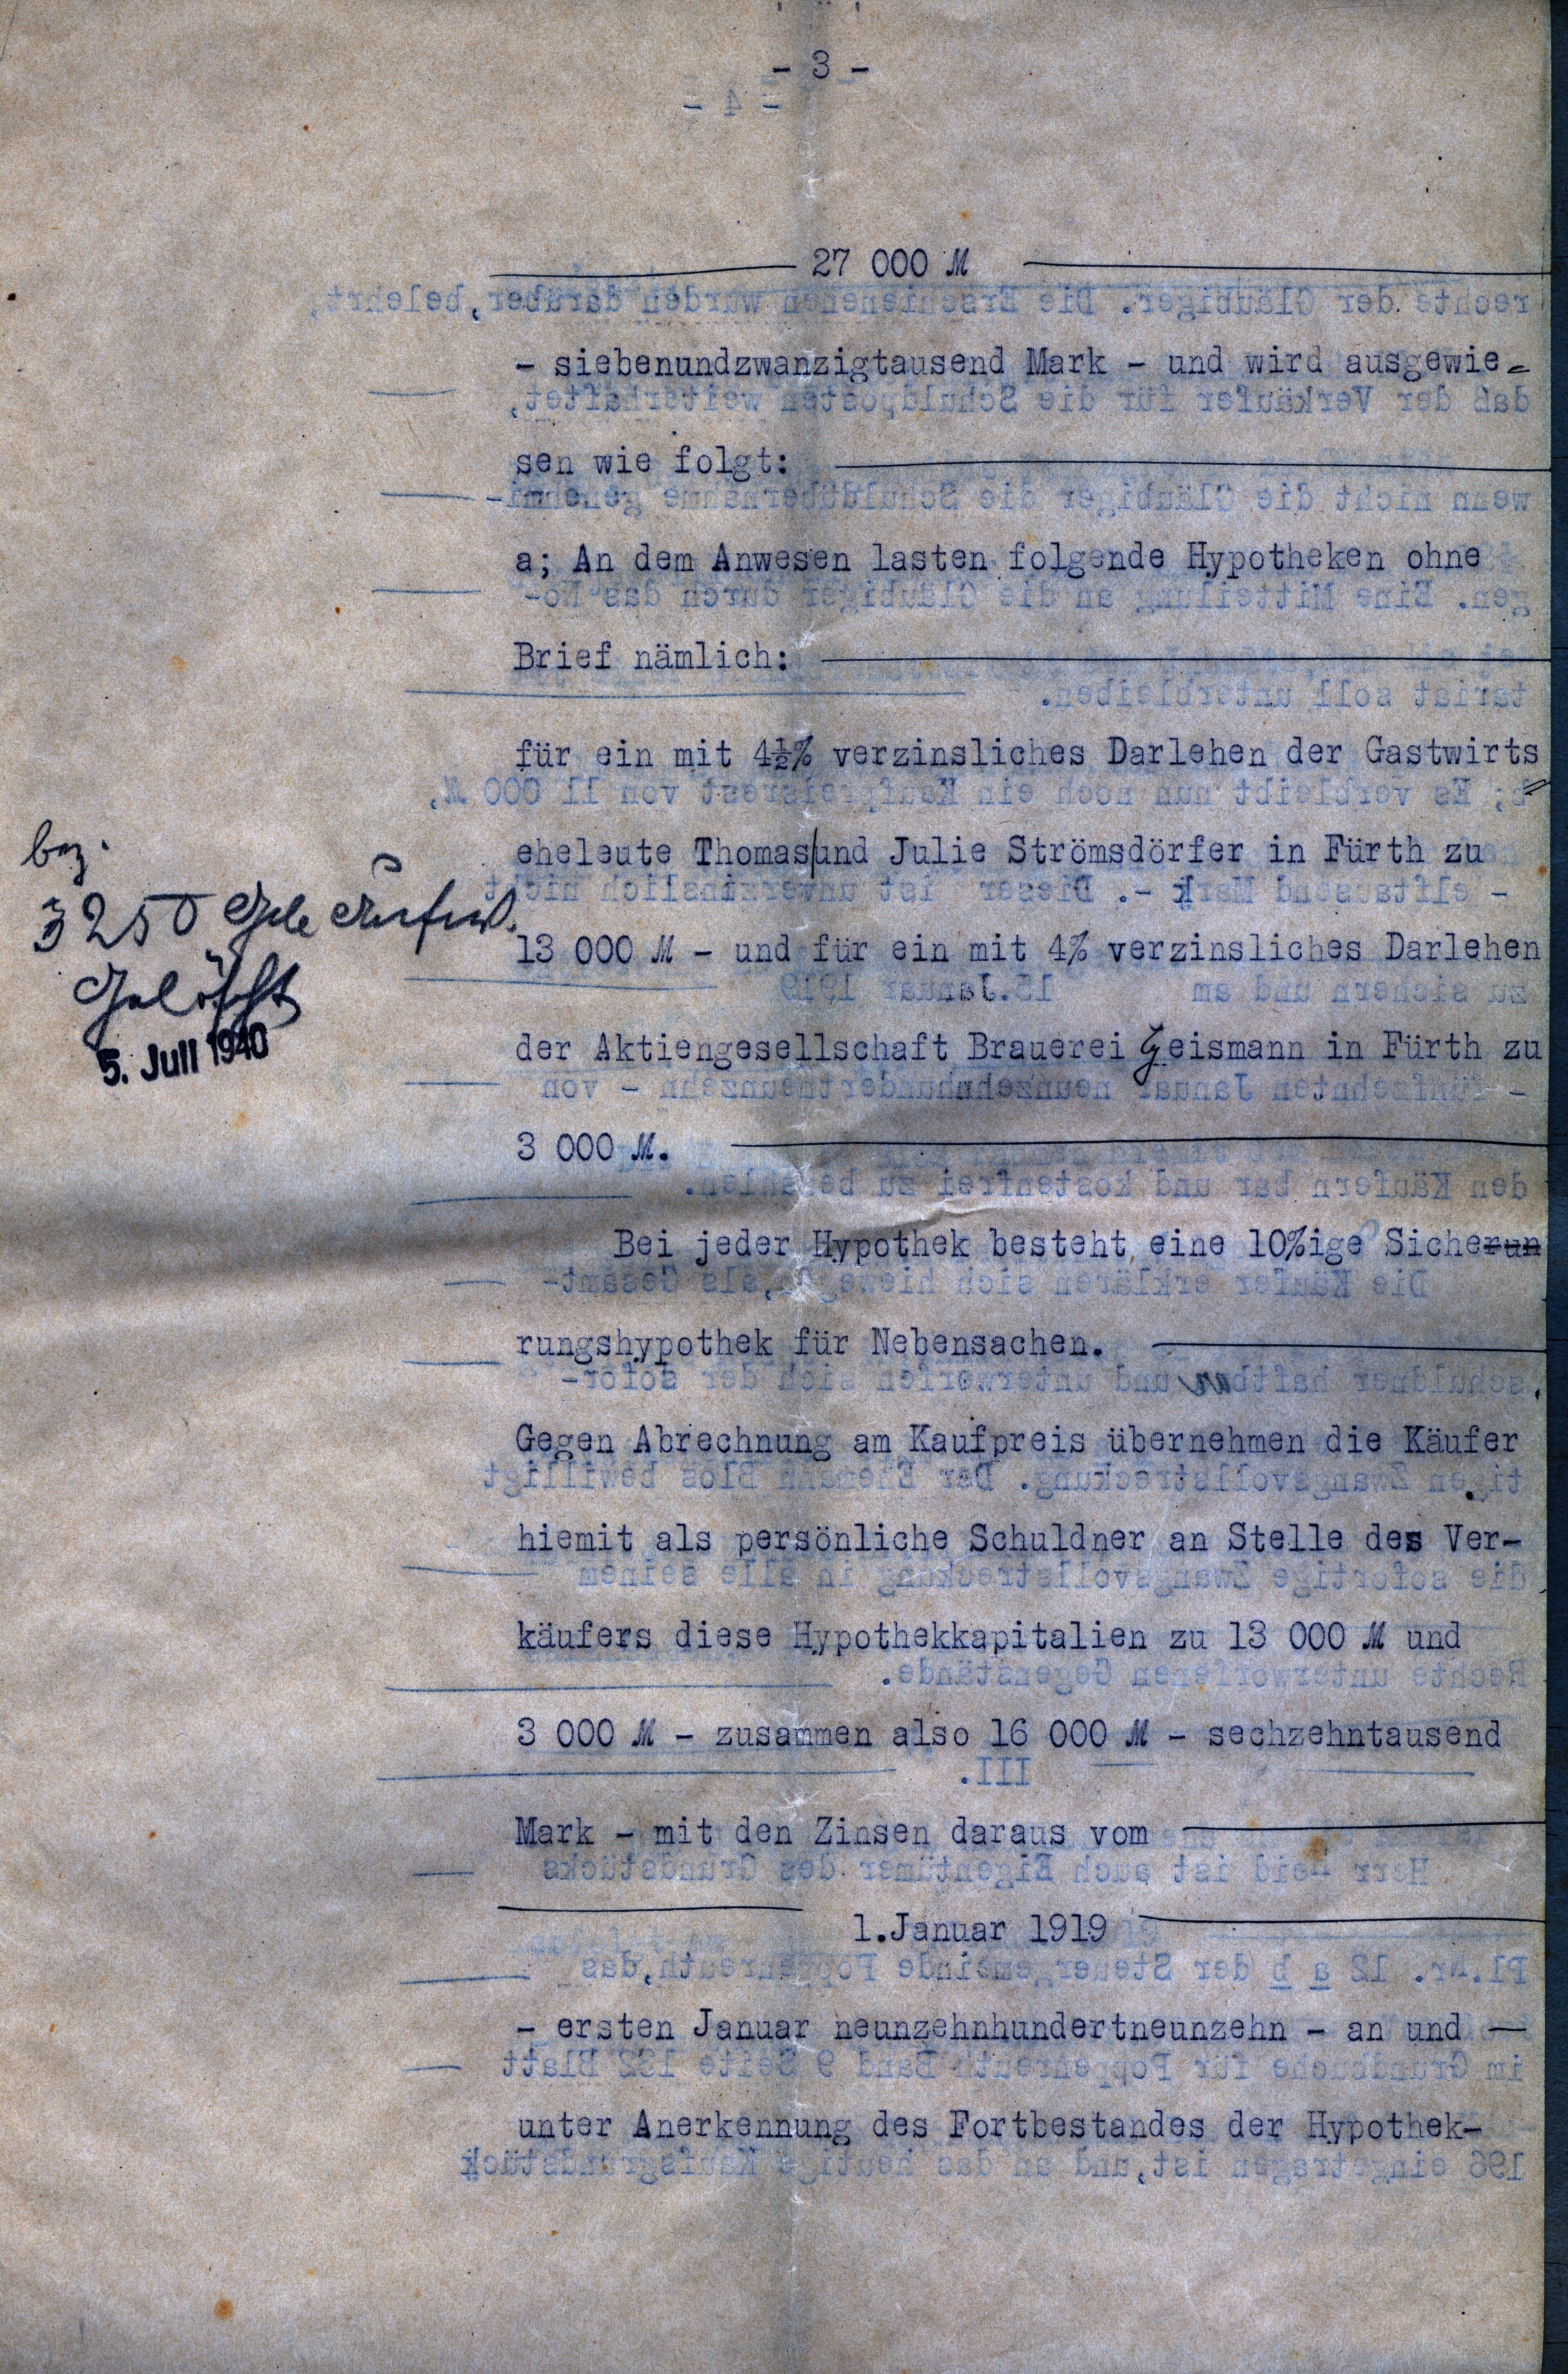 - 3 -
27 000 M
- siebenundzwanzigtausend Mark - und wird ausgewie=
sen wie folgt:
a; An dem Anwesen lasten folgende Hypotheken ohne
Brief nämlich:
für ein mit 4½% verzinsliches Darlehen der Gastwirts=
eheleute Thomas und Julie Strömsdörfer in Fürth zu
13 000 M - und für ein mit 4% verzinsliches Darlehen
der Aktiengesellschaft Brauerei Geismann in Fürth zu
3 000 M.
Bei jeder Hypothek besteht eine 10%ige Sicherun
rungshypothek für Nebensachen.
Gegen Abrechnung am Kaufpreis übernehmen die Käufer
hiemit als persönliche Schuldner an Stelle des Ver-
käufers diese Hypothekkapitalien zu 13 000 M und
3 000 M - zusammen also 16 000 M - sechzehntausend
Mark - mit den Zinsen daraus vom
1.Januar 1919
- ersten Januar neunzehnhundertneunzehn - an und —
unter Anerkennung des Fortbestandes der Hypothek-
bez.
3250
Gelöscht
5. Juli 1940